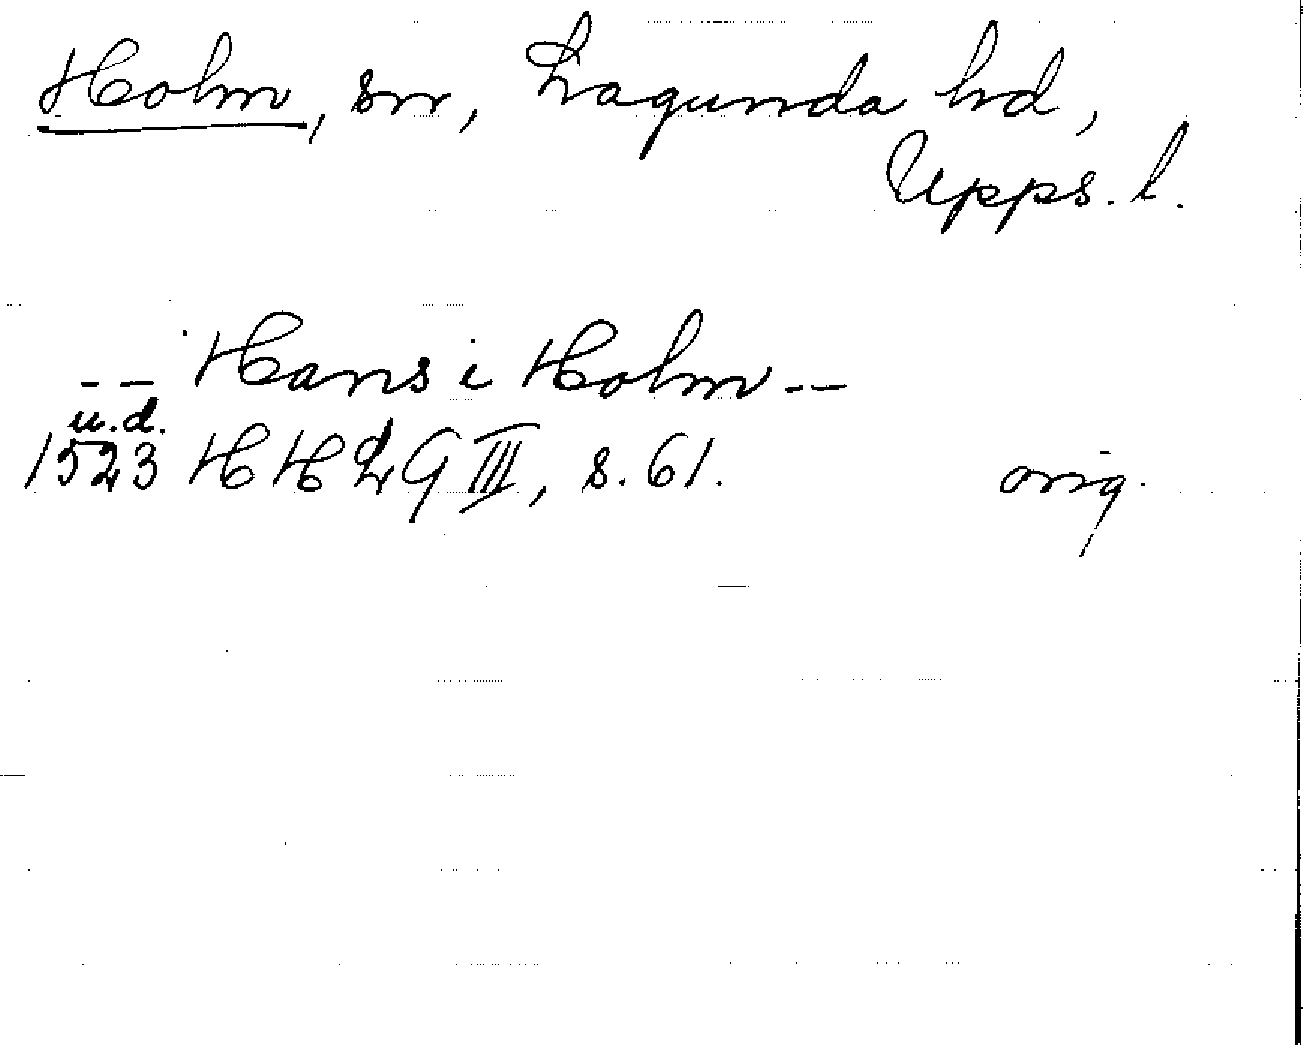 Holm, sn, Lagunda hd,
Upps. l.
-- Hans i Holm --
u.d.
1523 HH 29 III, s. 61. orig.